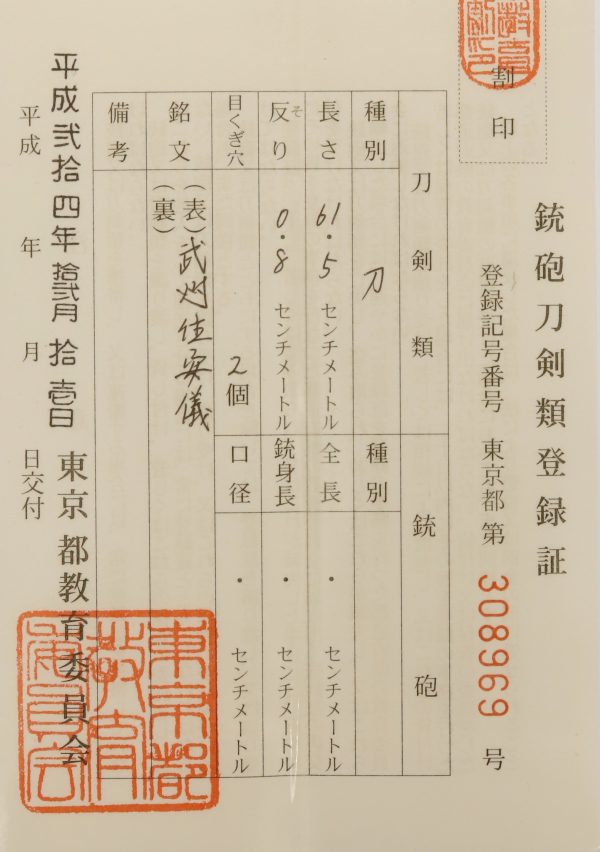 銃砲刀剣類登録証
割印
登録記号番号 東京都 第 308969 号
刀剣類
銃砲
種別 刀
種別
長さ 61.5 センチメートル
全長 ・ センチメートル
反り 0.8 センチメートル
そ
銃身長 ・ センチメートル
目くぎ穴 2個
口径 ・ センチメートル
銘文 (表)武州住安儀
(裏)
備考
平成弐拾四年拾弐月拾壱日
平成 年 月 日交付
東京都教育委員会
東京都
教育
委員会